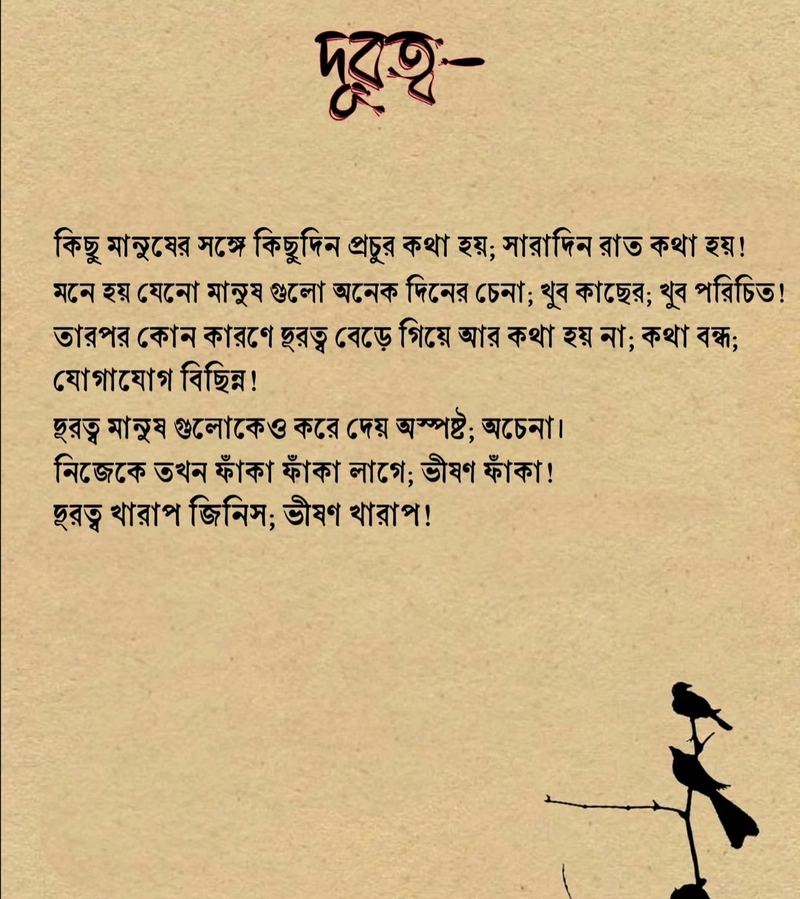 দূরত্ব-
কিছু মানুষের সঙ্গে কিছুদিন প্রচুর কথা হয়; সারাদিন রাত কথা হয়!
মনে হয় যেনো মানুষ গুলো অনেক দিনের চেনা; খুব কাছের; খুব পরিচিত!
তারপর কোন কারণে দূরত্ব বেড়ে গিয়ে আর কথা হয় না; কথা বন্ধ;
যোগাযোগ বিছিন্ন!
দূরত্ব মানুষ গুলোকেও করে দেয় অস্পষ্ট; অচেনা।
নিজেকে তখন ফাঁকা ফাঁকা লাগে; ভীষণ ফাঁকা!
দূরত্ব খারাপ জিনিস; ভীষণ খারাপ!